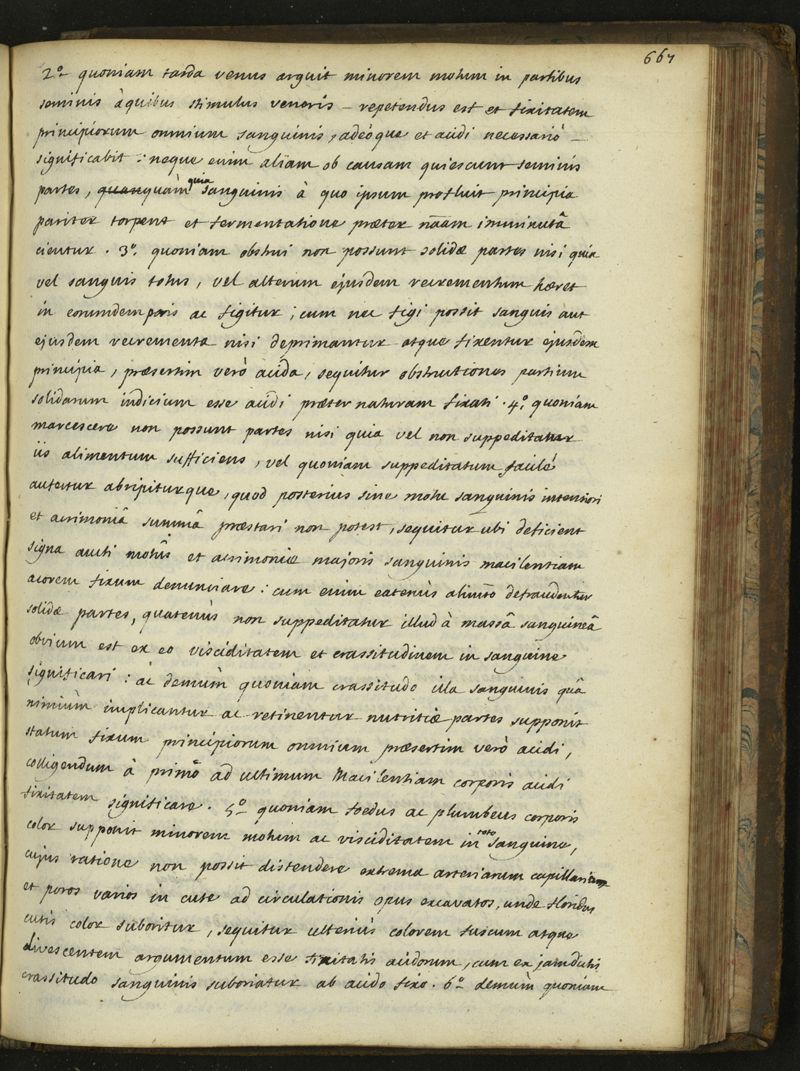 667
2º quoniam tarda venus arguit minorem motum in partibus
seminis à quibus stimulus veneris – repetendus est et fixitatem
principiorum omnium sanguinis, adeòque et acidi necessariò –
significabit : neque enim aliam ob causam quiescunt seminis
partes, quamquàm quia sanguinis à quo ipsum profluit principia
pariter torpent et fermentatione præter nãam imminutâ
cientur. 3º. quoniam obstrui non possunt solidæ partes nisi quia
vel sanguis totus, vel alterum ejusdem recrementum hæret
in eorumdem poris ac figitur ; cum nec figi possit sanguis aut
ejusdem recrementa nisi deprimantur atque fixentur ejusdem
principia, præsertim verò acida, sequitur obstructiones partium
solidarum indicium esse acidi præter naturam fixati. 4º. quoniam
marcescere non possunt partes nisi quia vel non suppeditatur
iis alimentum sufficiens, vel quoniam suppeditatum facilè
aufertur abripiturque, quod posterius sine motu sanguinis intensiori
et acrimoniâ summâ præstari non potest, sequitur ubi deficient
signa aucti motûs et acrimoniæ majoris sanguinis macilentiam
acorem fixum denunciare : cum enim eatenùs alimto defraudentur
solidæ partes, quatenùs non suppeditatur illud à massâ sanguineâ
obvium est ex eo visciditatem et crassitudinem in sanguine
significari : ac demùm quoniam crassitudo illa sanguinis quâ
nimiùm implicantur ac retinentur nutritiæ partes supponit
statum fixum principiorum omnium præsertim verò acidi,
colligendum à primô ad ultimum macilentiam corporis acidi
fixitatem significare. 5º quoniam foedus ac plumbeus corporis
color supponit minorem motum ac visciditatem in toto sanguine,
cujus ratione non possit distendere extrema arteriarum capillarium
et poros varios in cute ad circulationis opus excavatos, unde floridus
cutis color suboritur, sequitur ulterius colorem fuscum atque
livescentem argumentum esse fixitatis acidorum, cum ex jamdictis
crassitudo sanguinis suboriatur ab acido fixo. 6º demùm quoniam